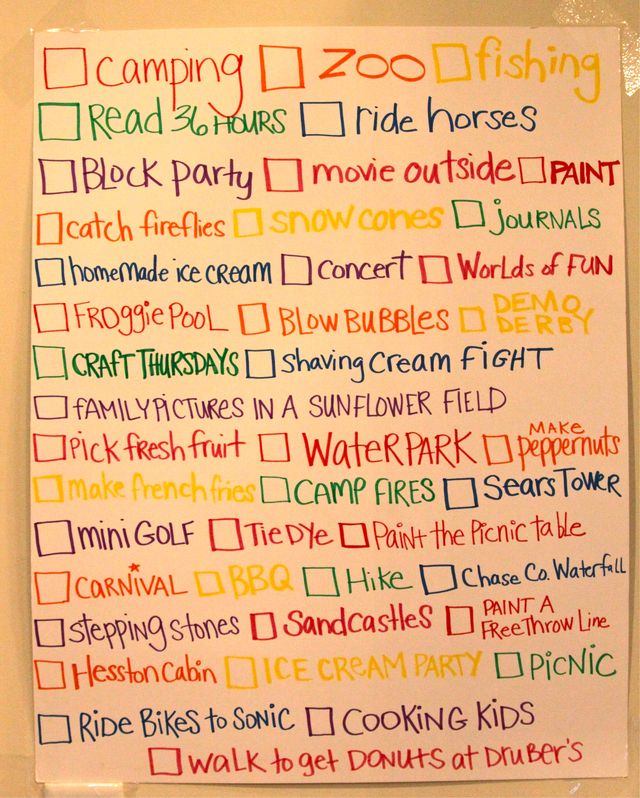 camping ZOO fishing
Read 36 HOURS ride horses
Block party movie outside PAINT
catch fireflies snow cones JOURNALS
homemade ice cream Concert Worlds of FUN
FROggie POOL BLOW BUBBLES DEMO DERBY
CRAFT THURSDAYS Shaving Cream FIGHT
FAMILY PICTURES IN A SUNFLOWER FIELD
Pick fresh fruit WateR PARK MAKE peppernuts
make french fries CAMP FIRES Sears Tower
mini GOLF Tie DYe Paint the Picnic table
CARNIVAL BBQ Hike Chase Co. Waterfall
stepping stones Sandcastles PAINT A FReeThrow Line
Hesston Cabin ICE CREAM PARTY PICNIC
RIDE BIKES to SONIC COOKING KIDS
WALK to get DONUTS at DRUBER'S